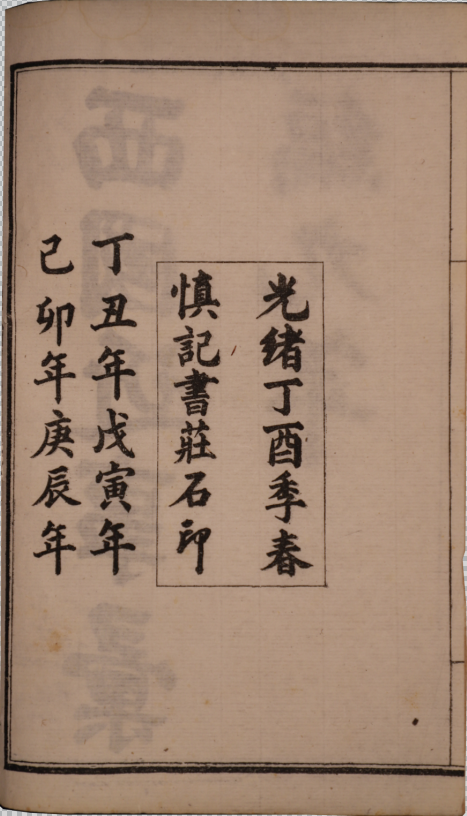 光緒丁酉季春
慎記書莊石印
丁丑年戊寅年
己卯年庚辰年